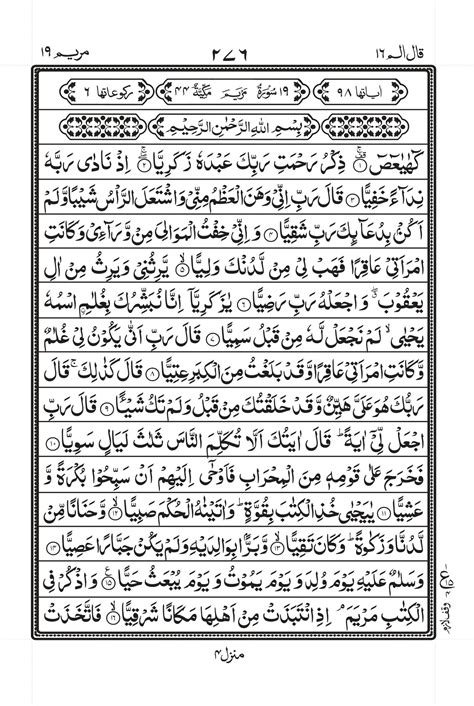 قال الم ۱۶ ۲۷۶ مريم ۱۹
اٰیاتها ۹۸ ۱۹ سُوْرَةُ مَرْيَمَ مَكِّيَّةٌ ۴۴ رکوعاتها ۶
بِسْمِ اللّٰهِ الرَّحْمٰنِ الرَّحِيْمِ
كٓهٰيٰعٓصٓ ۱ ذِكْرُ رَحْمَتِ رَبِّكَ عَبْدَهٗ زَكَرِيَّا ۲ اِذْ نَادٰى رَبَّهٗ
نِدَآءً خَفِيًّا ۳ قَالَ رَبِّ اِنِّىْ وَهَنَ الْعَظْمُ مِنِّىْ وَاشْتَعَلَ الرَّاْسُ شَيْبًا وَّلَمْ
اَكُنْۢ بِدُعَآئِكَ رَبِّ شَقِيًّا ۴ وَ اِنِّىْ خِفْتُ الْمَوَالِىَ مِنْ وَّرَآءِىْ وَكَانَتِ
امْرَاَتِىْ عَاقِرًا فَهَبْ لِىْ مِنْ لَّدُنْكَ وَلِيًّا ۵ يَّرِثُنِىْ وَيَرِثُ مِنْ اٰلِ
يَعْقُوْبَ ۖ وَ اجْعَلْهُ رَبِّ رَضِيًّا ۶ يٰزَكَرِيَّاۤ اِنَّا نُبَشِّرُكَ بِغُلٰمِ ۨاسْمُهٗ
يَحْيٰى ۙ لَمْ نَجْعَلْ لَّهٗ مِنْ قَبْلُ سَمِيًّا ۷ قَالَ رَبِّ اَنّٰى يَكُوْنُ لِىْ غُلٰمٌ
وَّكَانَتِ امْرَاَتِىْ عَاقِرًا وَّقَدْ بَلَغْتُ مِنَ الْكِبَرِ عِتِيًّا ۸ قَالَ كَذٰلِكَ ۚ قَالَ
رَبُّكَ هُوَ عَلَىَّ هَيِّنٌ وَّقَدْ خَلَقْتُكَ مِنْ قَبْلُ وَلَمْ تَكُ شَيْئًا ۹ قَالَ رَبِّ
اجْعَلْ لِّىْۤ اٰيَةً ؕ قَالَ اٰيَتُكَ اَلَّا تُكَلِّمَ النَّاسَ ثَلٰثَ لَيَالٍ سَوِيًّا ۱۰
فَخَرَجَ عَلٰى قَوْمِهٖ مِنَ الْمِحْرَابِ فَاَوْحٰۤى اِلَيْهِمْ اَنْ سَبِّحُوْا بُكْرَةً وَّ
عَشِيًّا ۱۱ يٰيَحْيٰى خُذِ الْكِتٰبَ بِقُوَّةٍ ؕ وَاٰتَيْنٰهُ الْحُكْمَ صَبِيًّا ۱۲ وَّحَنَانًا مِّنْ
لَّدُنَّا وَزَكٰوةً ؕ وَكَانَ تَقِيًّا ۱۳ وَّبَرًّۢا بِوَالِدَيْهِ وَلَمْ يَكُنْ جَبَّارًا عَصِيًّا ۱۴
وَسَلٰمٌ عَلَيْهِ يَوْمَ وُلِدَ وَ يَوْمَ يَمُوْتُ وَ يَوْمَ يُبْعَثُ حَيًّا ۱۵ وَ اذْكُرْ فِى
الْكِتٰبِ مَرْيَمَ ۘ اِذِ انْتَبَذَتْ مِنْ اَهْلِهَا مَكَانًا شَرْقِيًّا ۱۶ فَاتَّخَذَتْ
وقف لازم
منزل ۴